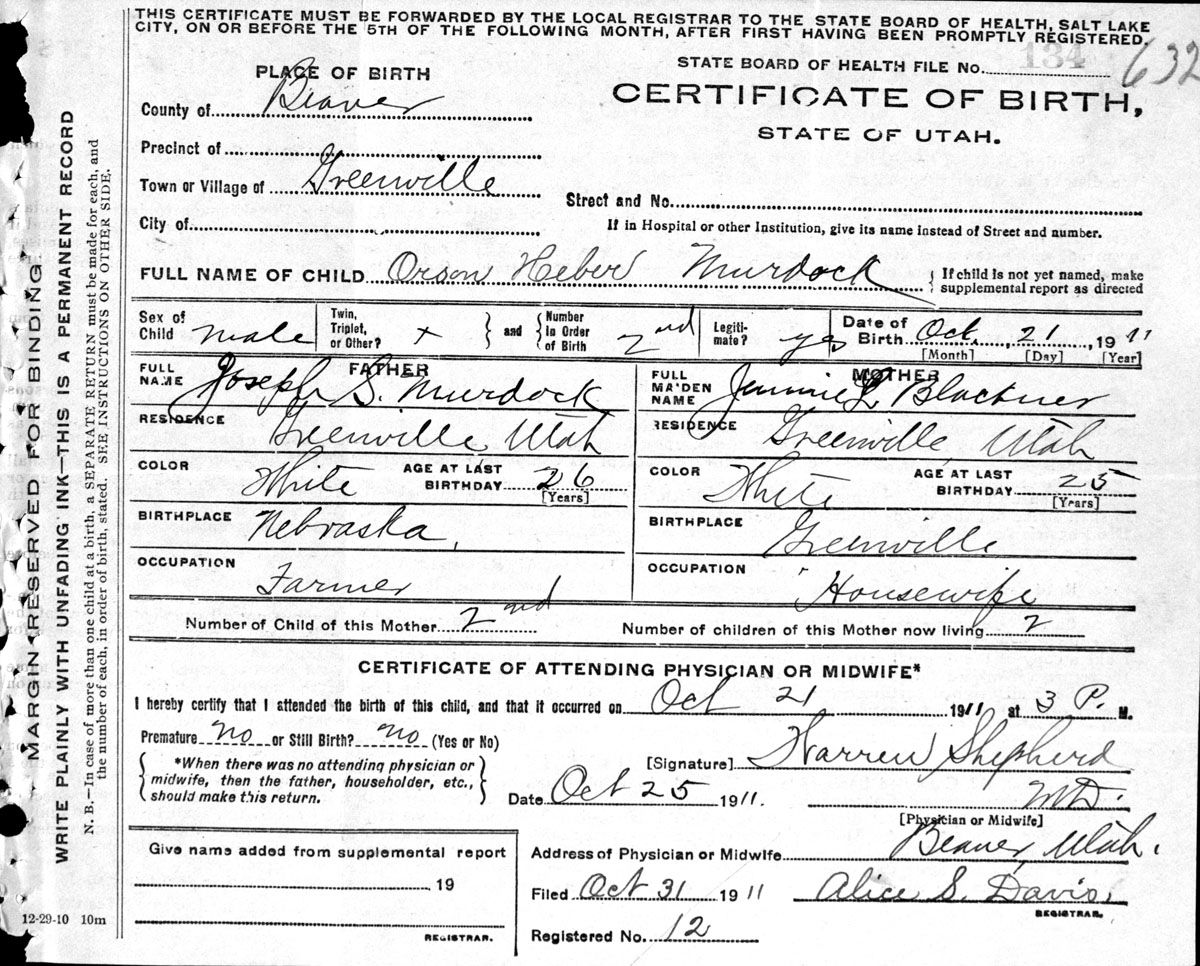 THIS CERTIFICATE MUST BE FORWARDED BY THE LOCAL REGISTRAR TO THE STATE BOARD OF HEALTH, SALT LAKE
CITY, ON OR BEFORE THE 5TH OF THE FOLLOWING MONTH, AFTER FIRST HAVING BEEN PROMPTLY REGISTERED.
MARGIN RESERVED FOR BINDING
WRITE PLAINLY WITH UNFADING INK—THIS IS A PERMANENT RECORD
N. B.—In case of more than one child at a birth, a SEPARATE RETURN must be made for each, and
the number of each, in order of birth, stated. SEE INSTRUCTIONS ON OTHER SIDE.
STATE BOARD OF HEALTH FILE No. 134 632
PLACE OF BIRTH
CERTIFICATE OF BIRTH,
STATE OF UTAH.
County of Beaver
Precinct of
Town or Village of Greenville
Street and No.
City of
If in Hospital or other Institution, give its name instead of Street and number.
FULL NAME OF CHILD Orson Heber Murdock { If child is not yet named, make
supplemental report as directed
Sex of Child male Twin, Triplet, or Other? + } and { Number in Order of Birth 2nd Legitimate? yes Date of Birth Oct. 21, 1911
[Month] [Day] [Year]
FATHER MOTHER
FULL NAME Joseph S. Murdock FULL MAIDEN NAME Jennie L Blackner
RESIDENCE Greenville, Utah RESIDENCE Greenville, Utah
COLOR White AGE AT LAST BIRTHDAY 26 [Years] COLOR White AGE AT LAST BIRTHDAY 25 [Years]
BIRTHPLACE Nebraska, BIRTHPLACE Greenville
OCCUPATION Farmer OCCUPATION Housewife
Number of Child of this Mother 2nd Number of children of this Mother now living 2
CERTIFICATE OF ATTENDING PHYSICIAN OR MIDWIFE*
I hereby certify that I attended the birth of this child, and that it occurred on Oct 21 1911 at 3 P. M.
Premature no or Still Birth? no (Yes or No)
{ *When there was no attending physician or
midwife, then the father, householder, etc.,
should make this return. }
[Signature] Warren Shepherd
Date Oct 25 1911. MD.
[Physician or Midwife]
Give name added from supplemental report
19
REGISTRAR.
12-29-10 10m
Address of Physician or Midwife Beaver, Utah.
Filed Oct 31 1911 Alice S. Davis,
REGISTRAR.
Registered No. 12